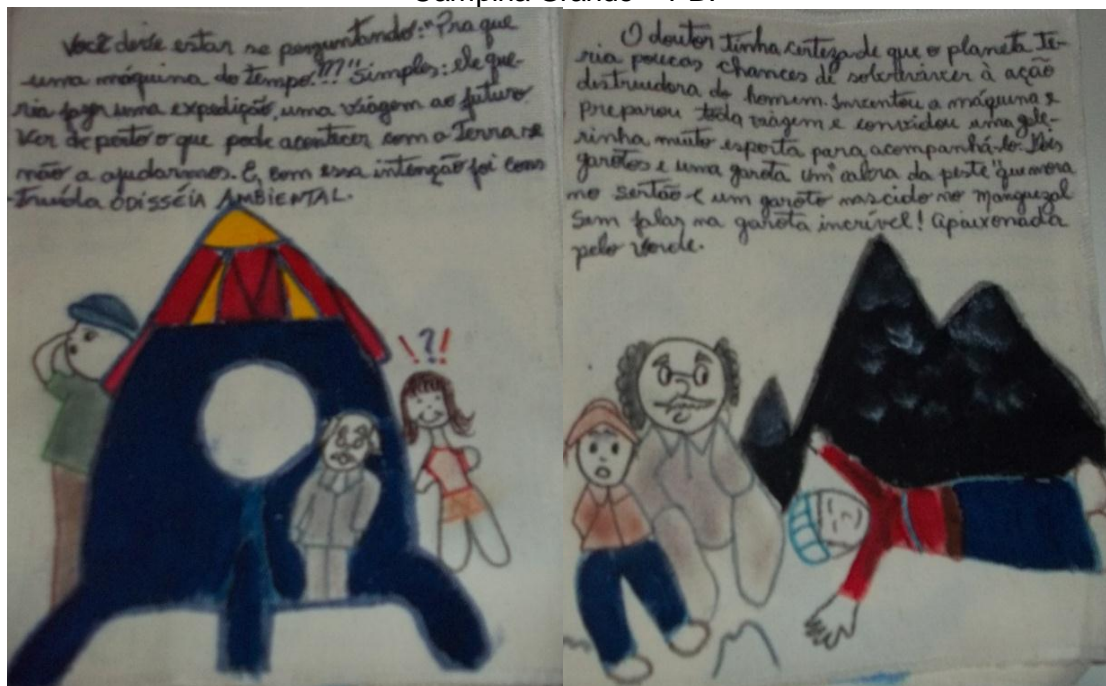 Campina Grande – PB.
Você deve estar se perguntando: "Pra que
uma máquina do tempo???" Simples: ele que-
ria fazer uma expedição, uma viagem ao futuro
Ver de perto o que pode acontecer com a Terra se
não a ajudarmos. E, com essa intenção foi cons
truída ODISSÉIA AMBIENTAL.
!?!
O doutor tinha certeza de que o planeta te-
ria poucas chances de sobreviver à ação
destruidora do homem. Inventou a máquina e
preparou toda viagem e convidou uma gale-
rinha muito esperta para acompanhá-lo. Dois
garotos e uma garota um "cabra da peste" que mora
no sertão e um garoto nascido no manguezal
Sem falar na garota incrível! Apaixonada
pelo verde.